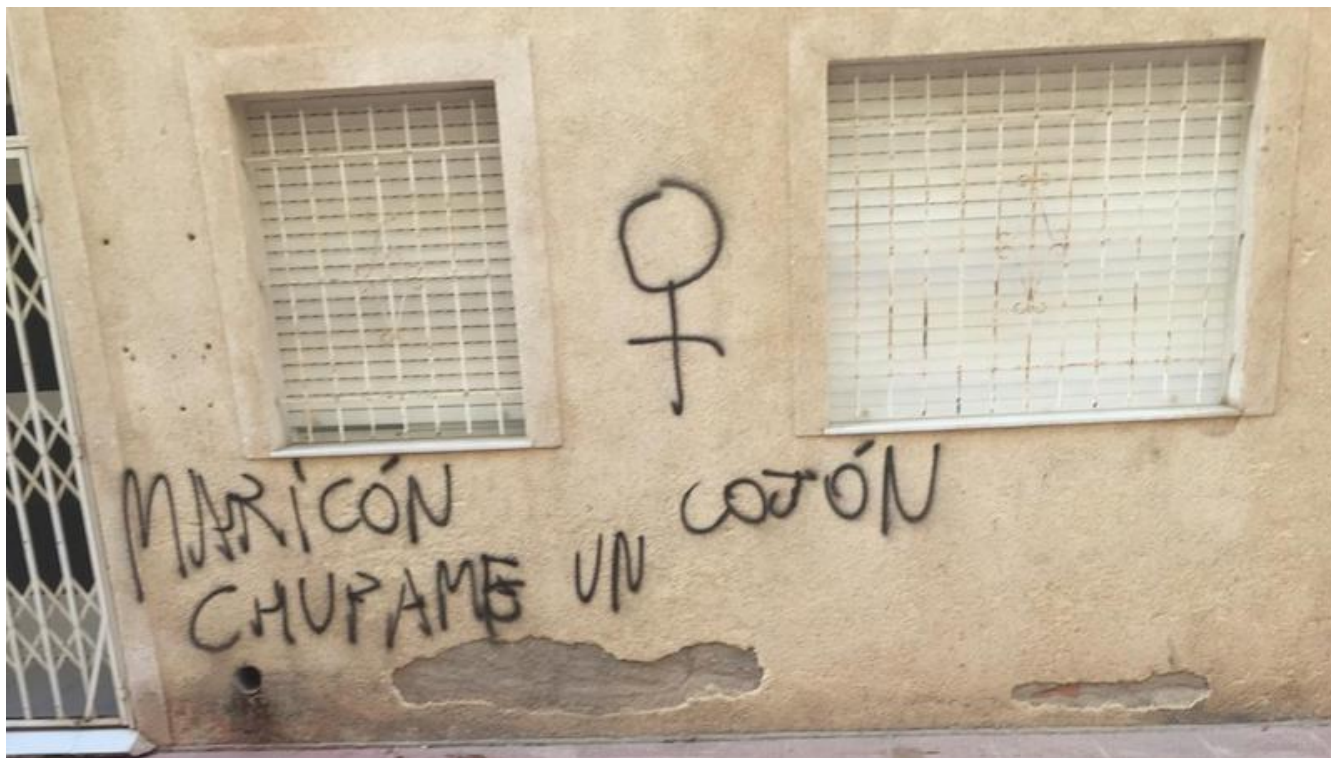 MARICÓN
CHUPAME UN COJÓN